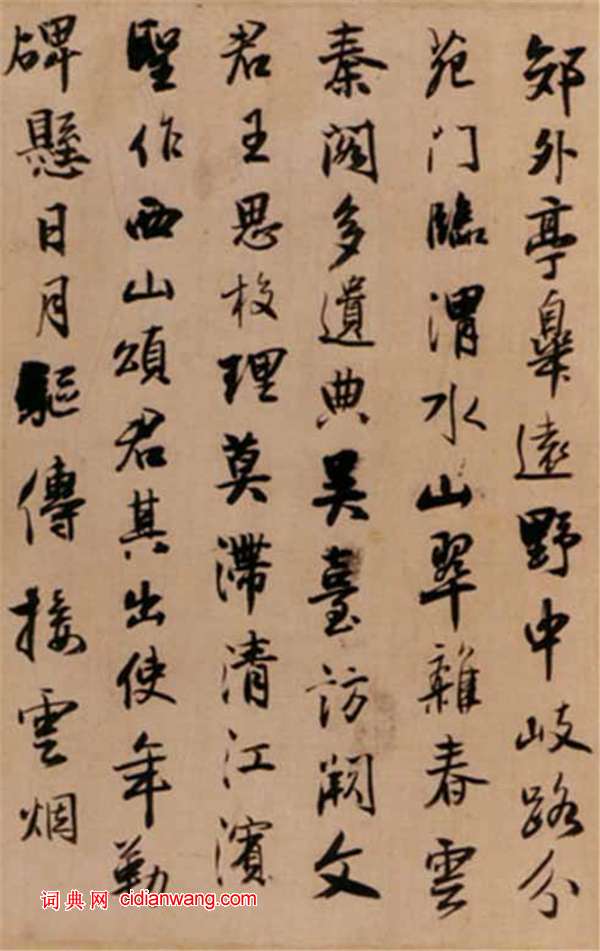 郊外亭皋遠野中岐路分
苑門臨渭水山翠雜春雲
秦閣多遺典吳臺訪闕文
君王思校理莫滯清江濱
聖作西山頌君其出使年勒
碑懸日月驅傳接雲烟
词典网 cidianwang.com